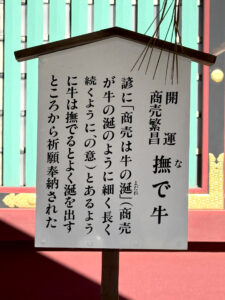 開運
商売繁昌
撫で牛
な
諺に「商売は牛の涎」（商売
よだれ
が牛の涎のように細く長く
続くように（の意）とあるよう
に牛は撫でるとよく涎を出す
ところから祈願奉納された